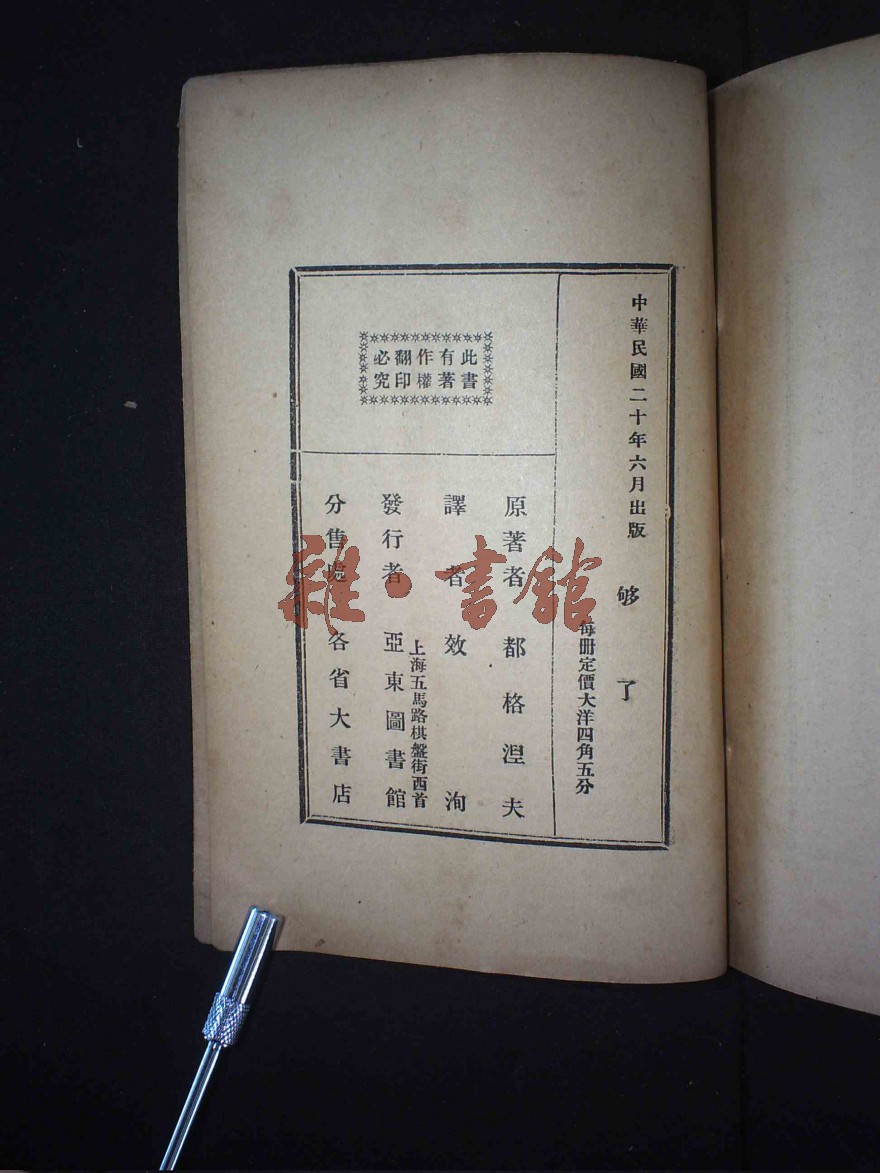 中華民國二十年六月出版
够了
每冊定價大洋四角五分
此書
有著
作權
翻印
必究
原著者 都格涅夫
譯者 效洵
上海五馬路棋盤街西首
發行者 亞東圖書館
分售處 各省大書店
雜·書館